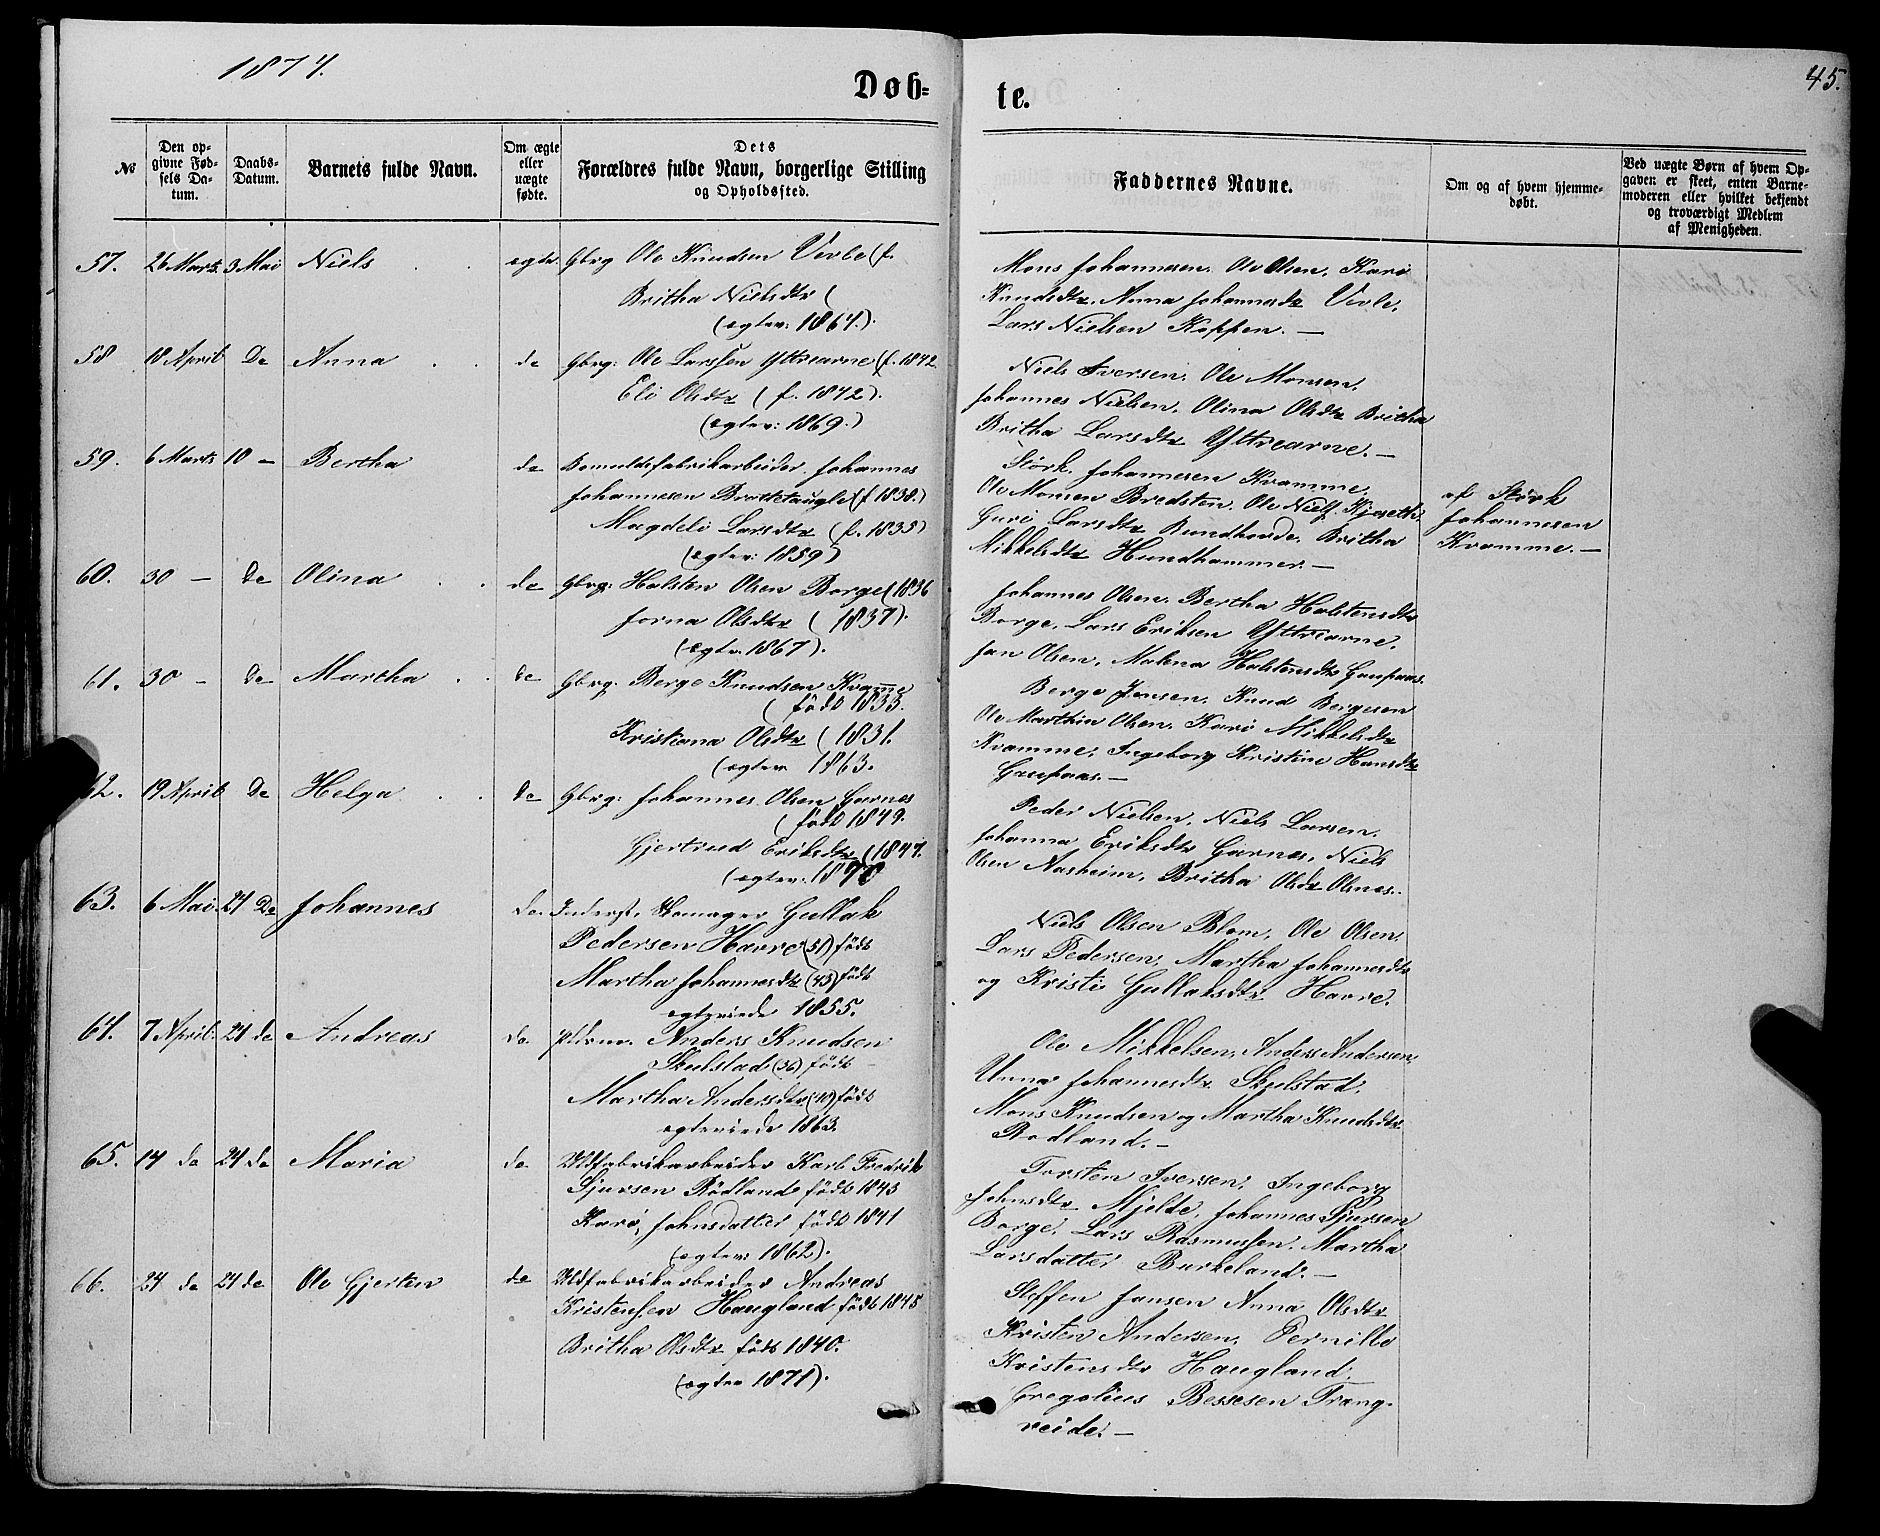 1874.
45.
Døb=
te.
No
Den op-
givne Fød-
sels Da-
tum.
Daabs-
Datum.
Barnets fulde Navn.
Om ægte
eller
uægte
fødte.
Dets
Forældres fulde Navn, borgerlige Stilling
og Opholdssted.
Faddernes Navne.
Om og af hvem hjemme-
døbt.
Ved uægte Børn af hvem Op-
gaven er skeet, enten Barne-
moderen eller hvilket bekjendt
og troværdigt Medlem
af Menigheden.
57. 26 Marts 3 Mai Niels ægte Gbrg Ole Knudsen Vevle (f.
Britha Nielsdtr (
(ægtev: 1864).
Mons Johannesen. Ole Olsen. Kari
Knudsdtr, Anna Johannesdtr Vevle,
Lars Nielsen Koppen. —
58 18 April De Anna de Gbrg: Ole Larssen Yttrearne (f. 1842
Eli Olsdtr (f. 1842).
(ægtev: 1869.)
Niels Iversen. Ole Monsen,
Johannes Nielsen. Olina Olsdtr Britha
Britha Larsdtr Yttrearne. —
59. 6 Marts 10 — Bertha de Bomuldsfabrikarbeider, Johannes
Johannesen (f 1838.)
Magdeli Larsdtr (f. 1835)
(ægtev: 1859)
Størk Johannesen Kvamme,
Ole Monsen Bredsten. Ole Niels.
Guri Larsdtr Britha
Mikkelsdtr Hundhammer. —
af Størk
Johannesen
Kvamme. —
60. 30 — de Olina de Gbrg: Holsten Olsen Borge (1836
Jorna Olsdtr (1837).
(ægtv. 1867).
Johannes Olsen. Bertha Holstensdtr
Borge. Lars Eriksen Yttrearne.
Jan Olsen. Malena Holstensdtr Gaupaas.
61. 30 — de Martha de Gbrg. Berge Knudsen Kvamme
(født 1833.
Kristiana Olsdtr (1831.
(ægtev 1863.
Berge Jensen. Knud Bergesen
Ole Marthin Olsen. Kari Mikkelsdtr
Kvamme, Ingeborg Kristine Hansdtr
Gaupaas. —
62. 19 April de Helga de Gbrg: Johannes Olsen Garnes
(født 1849.
Gjertrud Eriksdtr (1847.
(ægtev: 1870
Peder Nielsen, Niels Larsen.
Johanna Eriksdtr Garnes, Niels
Olsen Aasheim. Britha Olsdtr Olsnes.
63. 6 Mai. 24 De Johannes do. Inderst, Skomager Gullak
Pedersen Havre (31) født
Martha Johannesdtr (43) født
ægteviede 1855.
Niels Olsen Blom, Ole Olsen.
Lars Pedersen, Martha Johannesdtr
og Kristi Gullaksdtr Havre.
64. 7 April. 24 de Andreas do. Anders Knudsen
Skulstad (36) født
Martha Andersdtr (40) født
ægteviede 1863.
Ole Mikkelsen, Anders Andersen,
Unna Johannesdtr Skulstad,
Mons Knudsen og Martha Knudsdtr
Rødland. —
65. 14 de 24 de Maria do. Uldfabrikarbeider Karl Fredrik
Sjursen Rødland født 1843
Kari Johnsdatter født 1841
(ægtev: 1862).
Torsten Iversen, Ingeborg
Johnsdtr Mjelde, Johannes Sjursen
Borge, Lars Rasmussen. Martha
Larsdatter Burkeland. —
66. 24 de 24 de Ole Gjerten de Uldfabrikarbeider Andreas
Kristensen Haugland født 1845
Britha Olsdtr født 1840.
(ægtev 1871).
Steffen Jansen Anna Olsdtr
Kristen Andersen, Pernille
Kristensdtr Haugland,
Gregolius Bessesen Trang-
reide. —